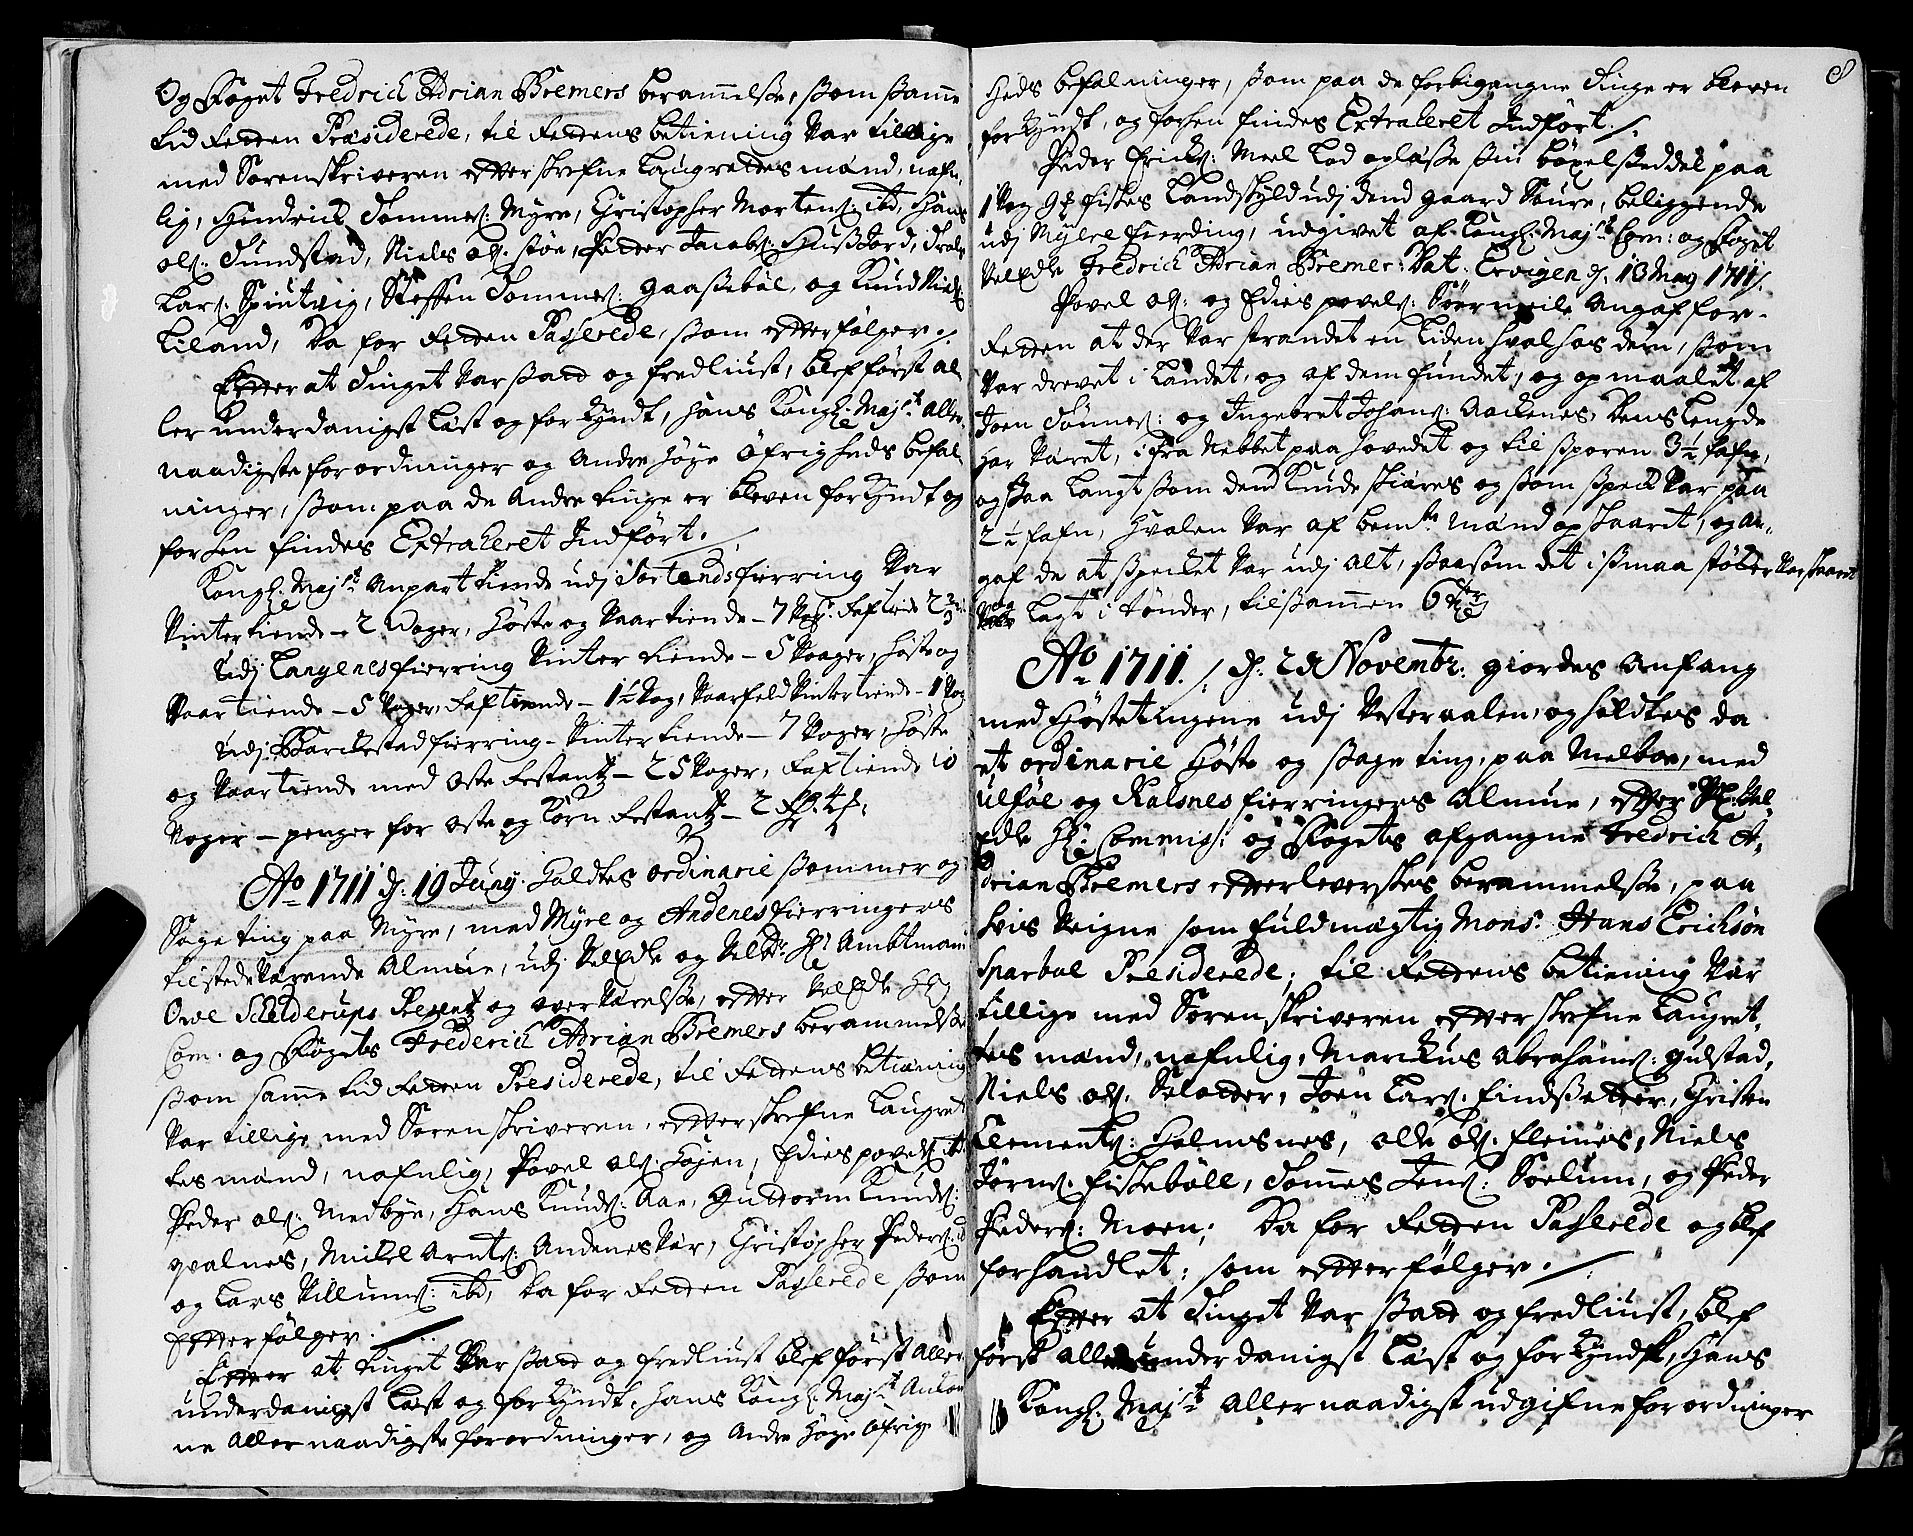 Og Foget Fredrich Adrian Bremers berammelse, som samme
tid Retten Præsiderede, til Rettens betiening var tillige
med Sorenskriveren effterskrefne Laugrettes mænd, nafn-
lig, Hendrick Tommes: Myre, Christopher Mortens: ibd, Hans
Ols: Tundstad, Niels Ols: støe, Petter Jacobs:
Lars: Spiutvig, Steffen Tommes: Gaassebøl, og Knud Niels:
Liland, Da for Retten Passerede, som effterfølger./.
Effter at Tinget var satt og fredliust, blef først al-
ler underdanigst læst og forkyndt, Hans Kongl: Majts Aller-
naadigste forordninger og Andre høye Øfrigheds befal-
ninger, som paa de Andre tinge er bleven forkyndt og
forhen findes Extraheret Indført. /
Kongl: Majts Anpart tiende udj Sortlandsfierring var
Vintertiende - 2 Voger, Høste og Vaartiende - 7 Vog: Raftiende 2
Udj Langenesfierring Vinter tiende - 5 Voager, Høste og
Vaartiende - 5 Voger, Raftiende - 1½ Vog, Vaarfeld Vintertiende - 1 Vog
Udj Barckestadfierring - Vintertiende - 7 Voger, Høste
og Vaartiende med Oste Restantz - 25 Voger, Raftiende 10
Voger - penger for oste og Korn Restantz - 2
Ao 1711 d. 19 Juny. Holdtes ordinarie sommer og
Sage ting paa Myre, med Myre og Andenesfierringers
tilstedeværende Almue, udj VelEdle og Velbr: Hr Ambtmand
Owe Schelderups Regentz og overværelse, effter velEdle Hr
Com: og Fogets Frederich Adrian Bremers berammelse
som samme tid Retten Presiderede, til Rettens betiening
var tillige med Sorenskriveren, effterskrefne Laugret-
tes mænd, nafnlig, Povel Ols: Højen, Edies povels: ibd
Peder Ols: Medbye, Hans Knuds: Aae, Guttorm Knuds:
qvalnes, Mickel Arnts: Andenesvær, Christopher Peders: ibd
og Lars Villums: ibd, Da for Retten Passerede som
effterfølger.
Effter at tinget var satt og fredliust blef først Aller
underdanigst læst og forkyndt, Hans Kongl: Majts Andom
ne Allernaadigste forordninger, og Andre høye øfrig-
8
heds befalninger, som paa de forbigangne Tinge er bleven
forkyndt, og forhen findes Extraheret Indført./.
Peder Ericks: Meel Lod oplæsse sin böxelseddel paa
1 Vog fiskes Landskyld udj dend gaard Soure, beliggende
udj Myere fierding, udgivet af Kongl: Majts Com: og Foget
VelEdle Fredrich Adrian Bremer: Dat: Ervigen d. 13 May 1711.
Povel Ols: og Edies povels: Angaf for-
Retten at der var strandet en liden hval hos dem, som
var drevet i Landet, og af dem fundet, og opmaalet af
Joen Tønnes: og Ingebret Johans: Aackenes, Dens lengde
har været, ifra Nebbet paa hovedet og til sporen 3½ fafn,
og saa Langt som dend kunde skiæres og som speck var paa
2½ fafn, Hvalen var af bemte Mænd opskaaret, og An-
gaf de at specket var udj alt, saasom det i smaa støcker var skaaret
og Lagt i tønder, tilsammen 6 tdr
Ao 1711./: d. 2 Novembr: giordes Anfang
med Høstetingene udj Vesteraalen, og holdtes da
et ordinarie Høste og sage ting, paa Melboe, med
Ulføe og Kalsnes fierringers Almue, effter Vel
Edle Hr: Commiss: og Fogets afgangne Fredrich A-
drian Bremers effterleverskes berammelse, paa
hvis veigne som fuldmægtig Mons: Hans Erichsøn
Sparboe Presiderede; til Rettens betiening var
tillige med Sorenskriveren effterskrefne Laugret-
tes mænd, nafnlig, Marckus Abrahams: gulstad,
Niels Ols: Selotter, Joen Lars: Findssetter, Christen
Clements: Holmsnes, Olle Ols: Fleines, Niels
Jørns: Fiskebøll, Tomes Jens: Soelum, og Peder
Peders: Moen; Da for Retten Passerede og blef
forhandlet; som effterfølger. /.
Effter at Tinget var satt og fredliust, blef
først aller underdanigst læst og forkyndt, Hans
Kongl: Majts Allernaadigst udgifne forordninger